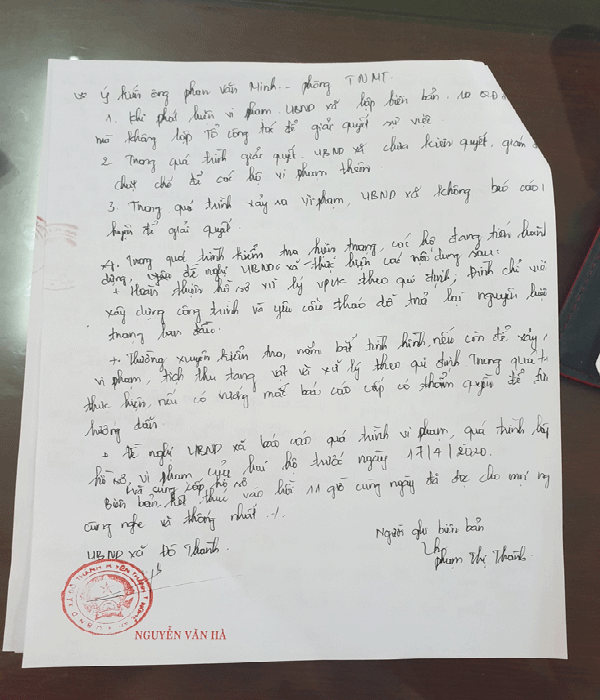 Ý kiến ông phan văn Minh -- phòng TNMT.
1. Khi phát hiện vi phạm. UBND xã lập biên bản. ra QĐ
mà không lập Tổ công tác để giải quyết sự việc.
2. Trong quá trình giải quyết. UBND xã chưa kiên quyết.
chặt chẽ để các hộ vi phạm thêm.
3. Trong quá trình xảy ra vi phạm, UBND xã không báo cáo
huyện để giải quyết.
4. Trong quá trình kiểm tra hiện trạng, các hộ đang tiến hành
dựng, đề nghị UBND xã thực hiện các nội dung sau:
+ Hoàn thiện hồ sơ xử lý VPHC theo qui định, Đình chỉ việc
xây dựng công trình và yêu cầu tháo dỡ trả lại nguyên hiện
trạng ban đầu.
+ Thường xuyên kiểm tra, nắm bắt tình hình, nếu còn để xảy
vi phạm, tịch thu tang vật và xử lý theo qui định Trong quá
thực hiện, nếu có vướng mắc báo cáo cấp có thẩm quyền để
hướng dẫn.
+ Đề nghị UBND xã báo cáo quá trình vi phạm, quá trình lập
hồ sơ, vi phạm của hai hộ trước ngày 17/4/2020.
và cung cấp hồ sơ
Biên bản kết thúc vào hồi 11 giờ cùng ngày đã đọc cho mọi ng
cùng nghe và thống nhất ./.
Người ghi biên bản
UBND xã Đô Thành.
phạm Thị Thành.
NGUYỄN VĂN HÀ